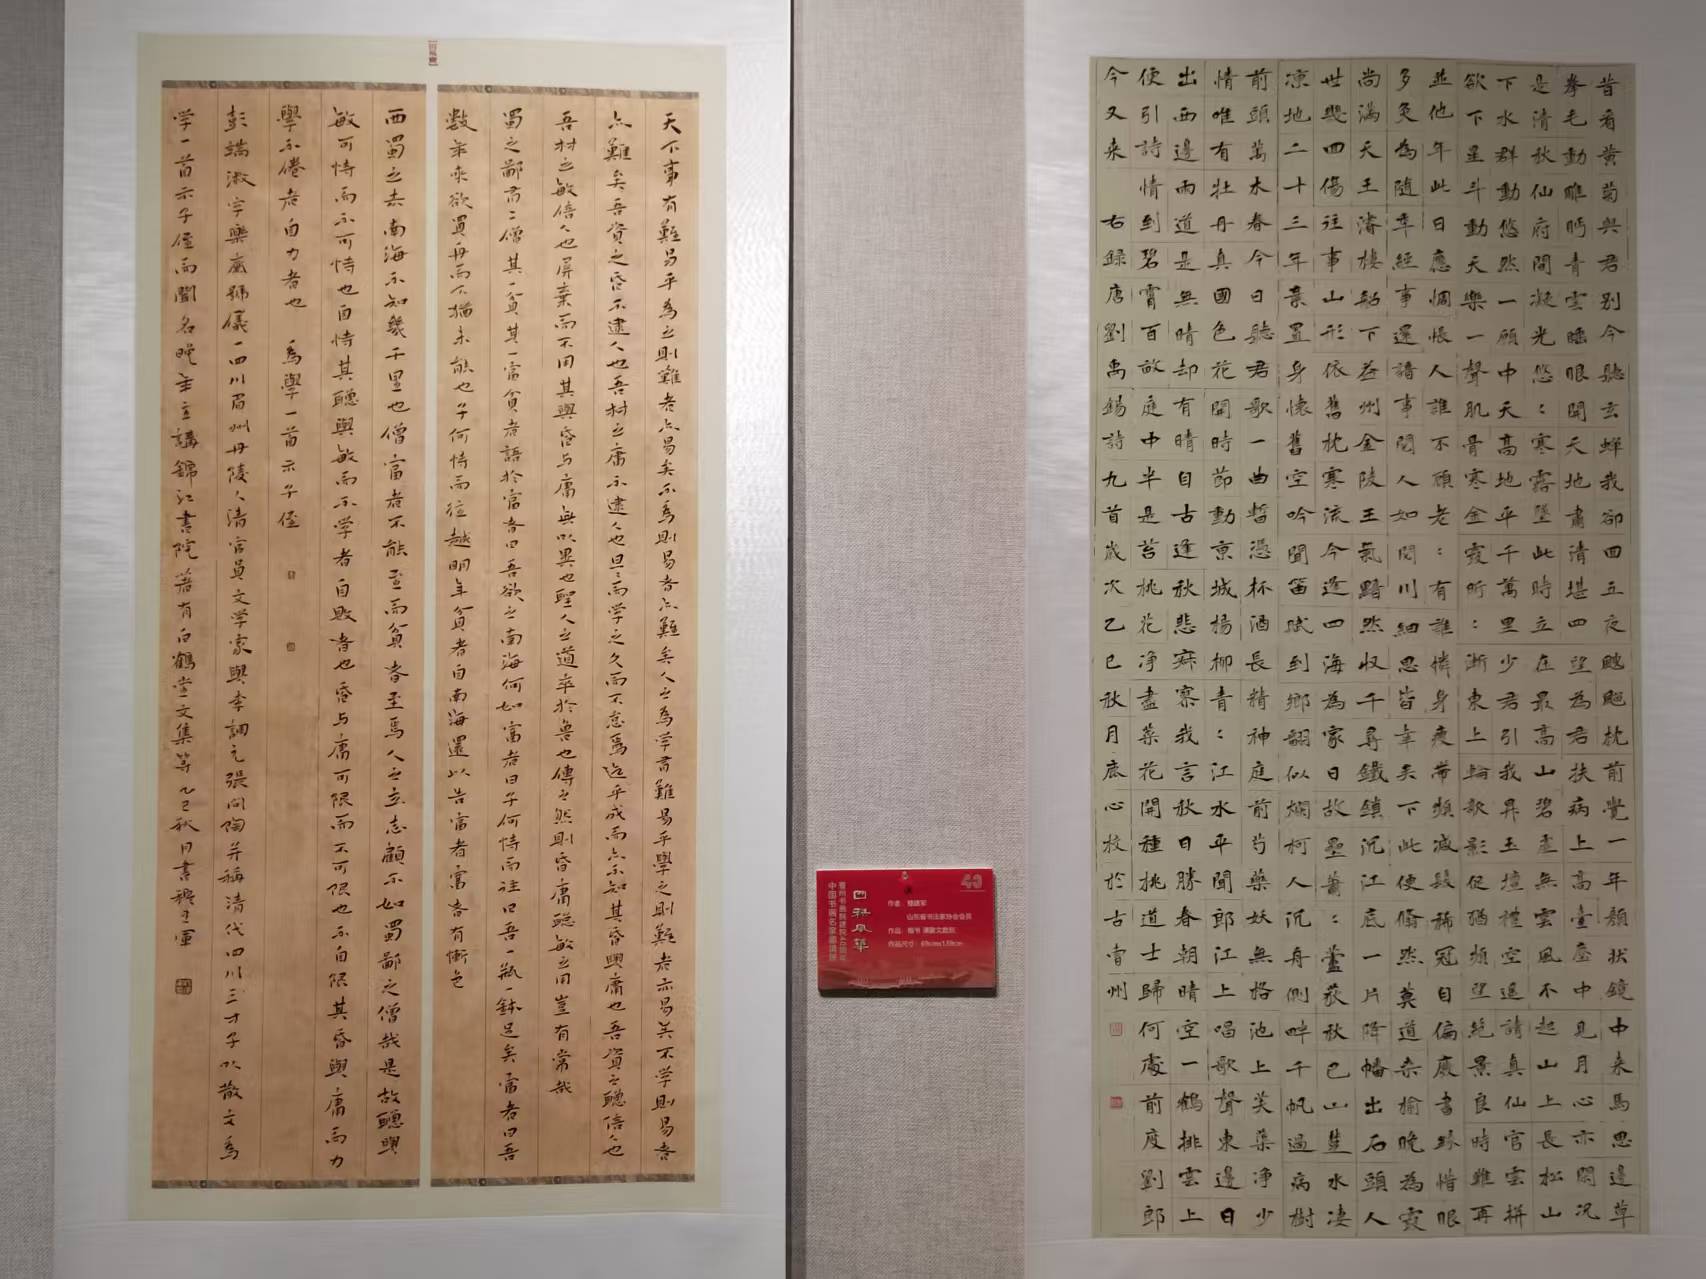 天下事有難易乎為之則難者亦易矣不為則易者亦難矣人之為学有難易乎學之則難者亦易矣不学則易者
亦難矣吾資之昏不逮人也吾材之庸不逮人也旦:而学之久而不怠焉迄乎成而亦不知其昏與庸也吾資之聰倍人也
吾材之敏倍人也屏棄而不用其與昏与庸無以異也聖人之道卒於魯也傳之然則昏庸聰敏之用豈有常哉
蜀之鄙有二僧其一貧其一富貧者語於富者曰吾欲之南海何如富者曰子何恃而往曰吾一瓶一鉢足矣富者曰吾
數年來欲買舟而下猶未能也子何恃而往越明年貧者自南海還以告富者富者有慚色
西蜀之去南海不知幾千里也僧富者不能至而貧者至焉人之立志顧不如蜀鄙之僧哉是故聰與
敏可恃而不可恃也自恃其聰與敏而不学者自敗者也昏与庸可限而不可限也不自限其昏與庸而力
學不倦者自力者也 為學一首示子侄
彭端淑字樂齋號儀一四川眉州丹陵人清官員文学家與李調元張問陶并稱清代四川三才子以散文為
学一首示子侄而聞名晚年主講錦江書院著有白鶴堂文集等乙巳秋月書穆建軍
40
中国书画名家邀请展
作者：穆建军
山东省书法家协会会员
昔看黄菊與君别今聽玄蟬我卻回五夜颼飀枕前覺一年顏狀鏡中來馬思邊草
拳毛動雕眄青雲睡眼開天地肅清堪四望為君扶病上高臺塵中見月心亦閑況
是清秋仙府間凝光悠:寒露墜此時立在最高山碧虛無雲風不起山上長松山
下水群動悠然一顧中天高地平千萬里少君引我昇玉壇禮空遥請真仙官雲軿
欲下星斗動天樂一聲肌骨寒金霞昕:漸東上輪欹影促猶頻望絶景良時難再
並他年此日應惆悵人誰不願老:有誰憐身瘦帶頻減髮稀冠自偏廢書緣惜眼
多灸為隨年經事還諳事閱人如閱川細思皆幸矣下此便翛然莫道桑榆晚為霞
尚滿天王濬樓船下益州金陵王氣黯然收千尋鐵鎖沉江底一片降幡出石頭人
世幾回傷往事山形依舊枕寒流今逢四海為家日故壘蕭:蘆荻秋巴山楚水凄
凉地二十三年棄置身懷舊空吟聞笛賦到鄉翻似爛柯人沉舟側畔千帆過病樹
前頭萬木春今日聽君歌一曲暫憑杯酒長精神庭前芍藥妖無格池上芙蕖净少
情唯有牡丹真國色花開時節動京城楊柳青:江水平聞郎江上唱歌聲東邊日
出西邊雨道是無晴却有晴自古逢秋悲寂寥我言秋日勝春朝晴空一鶴排雲上
便引詩情到碧霄百畝庭中半是苔桃花净盡菜花開種桃道士歸何處前度劉郎
今又來 右録唐劉禹錫詩九首歲次乙巳秋月底心校於古青州